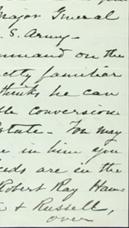 Major General
S. Army
mmand on the
ctly familiar
thinks he can
the conversion
state. You may
e in him you
eeds are in the
Robert Ray Ham
& Russell,
over